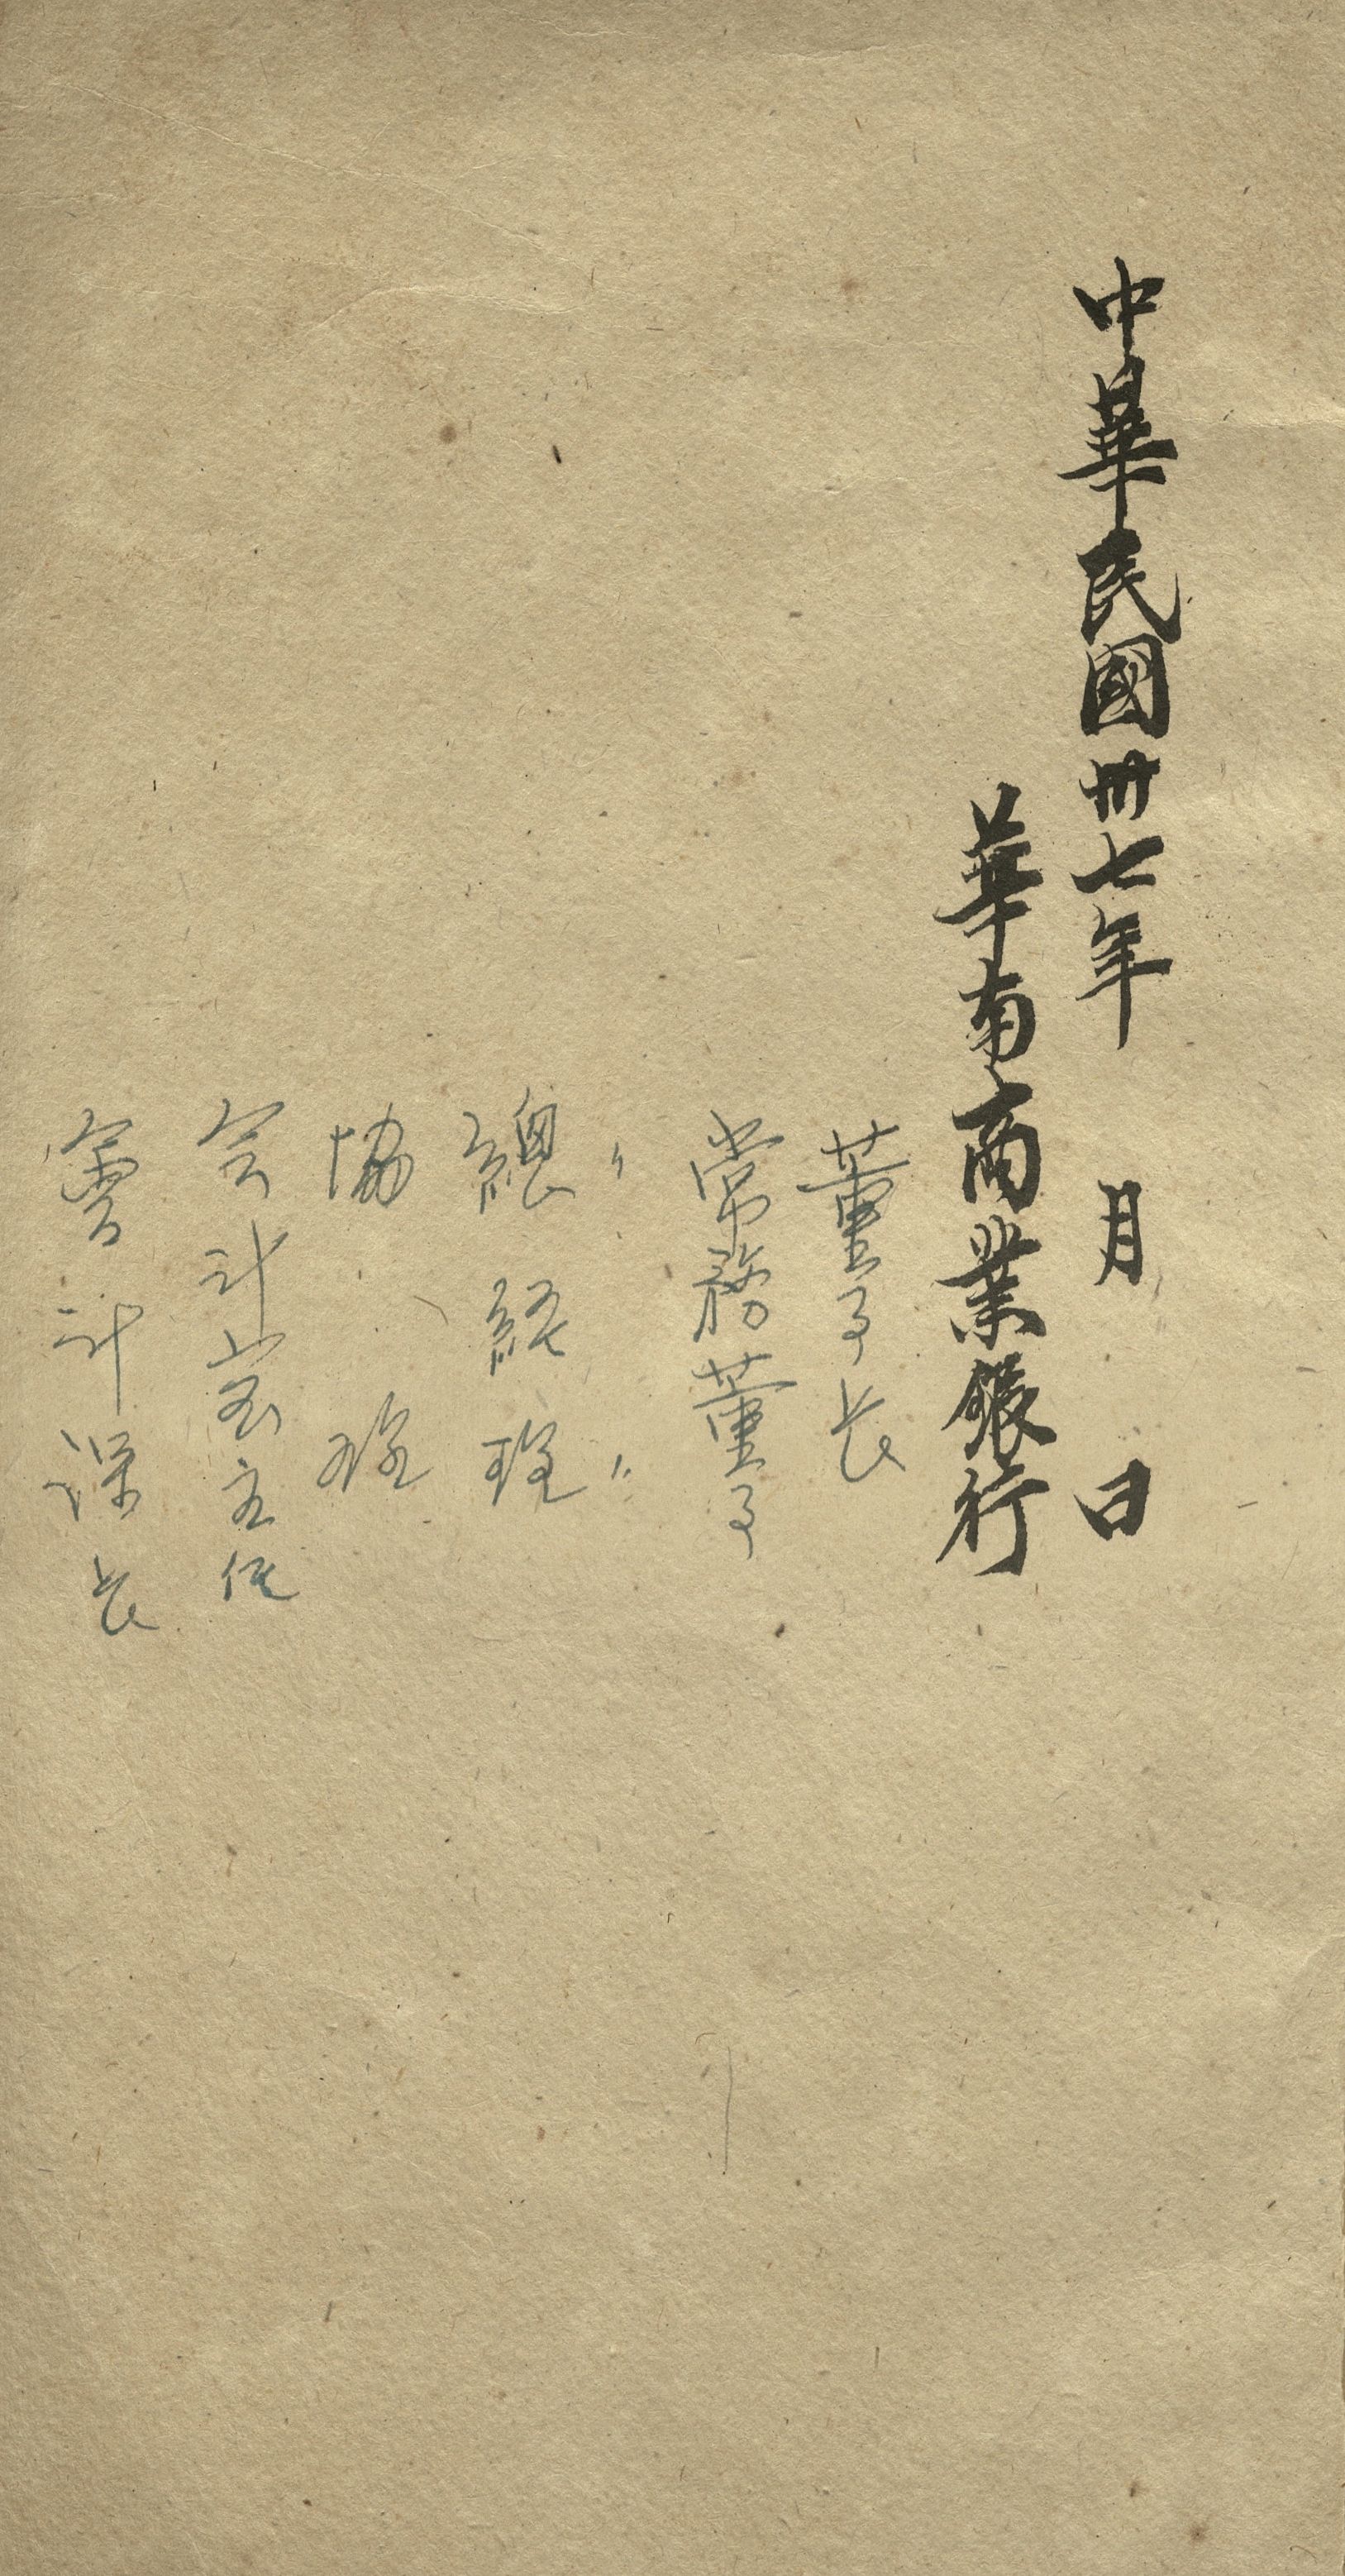 中華民國卅七年 月 日
華南商業銀行
董事長
常務董事
〃 〃
總經理
協理
会計室主任
會計課長